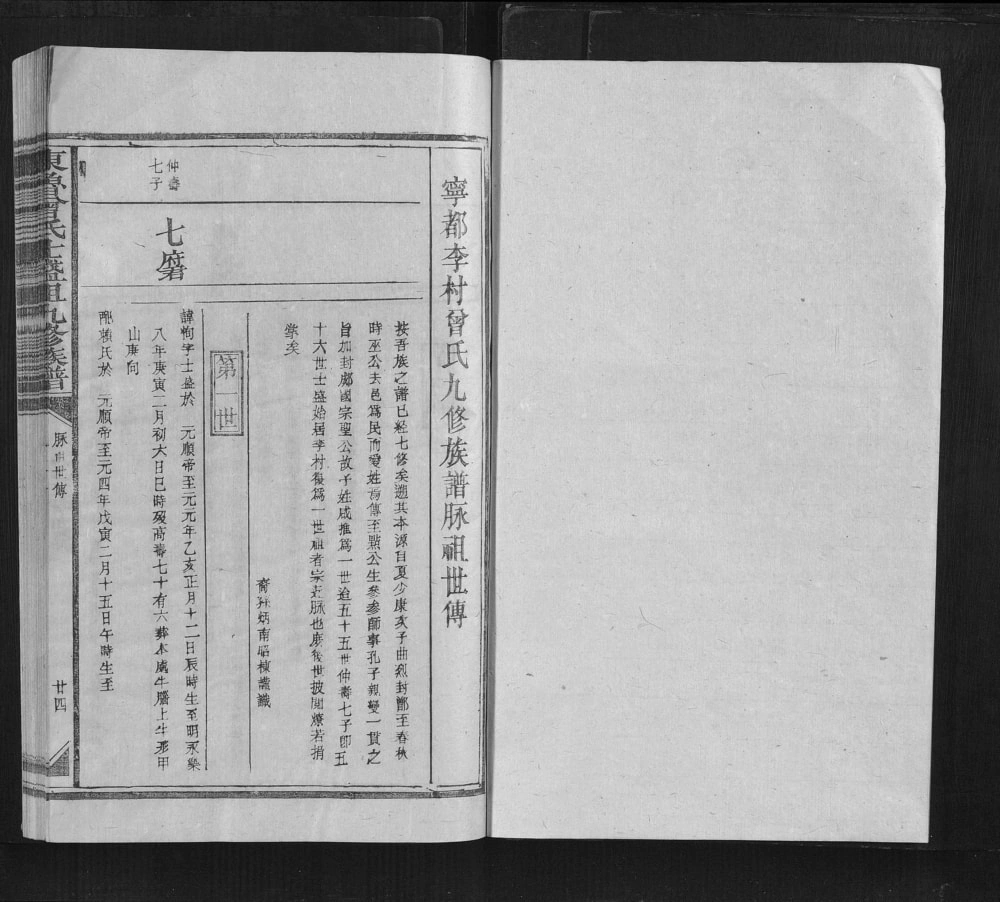 寧都李村曾氏九修族譜脉祖世傳
按吾族之譜已經七修矣遡其本源自夏少康次子曲烈封鄫至春秋
時巫公去邑爲民而爰姓焉傳至點公生參參師事孔子親受一貫之
旨加封郕國宗聖公故子姓咸推爲一世迨五十五世仲壽七子卽五
十六世士盛始居李村復爲一世祖者宗近脉也庶後世披閱燎若指
掌矣
裔孫炳南昭棟謹識
仲壽
七子
七府君
第一世
諱 字士盛於 元順帝至元元年乙亥正月十二日辰時生至明永樂
八年庚寅二月初六日巳時歿高壽七十有六葬本處牛腦上牛形甲
山庚向
配賴氏於 元順帝至元四年戊寅二月十五日午時生至
東魯曾氏士盛祖九修族譜
脉祖世傳
廿四